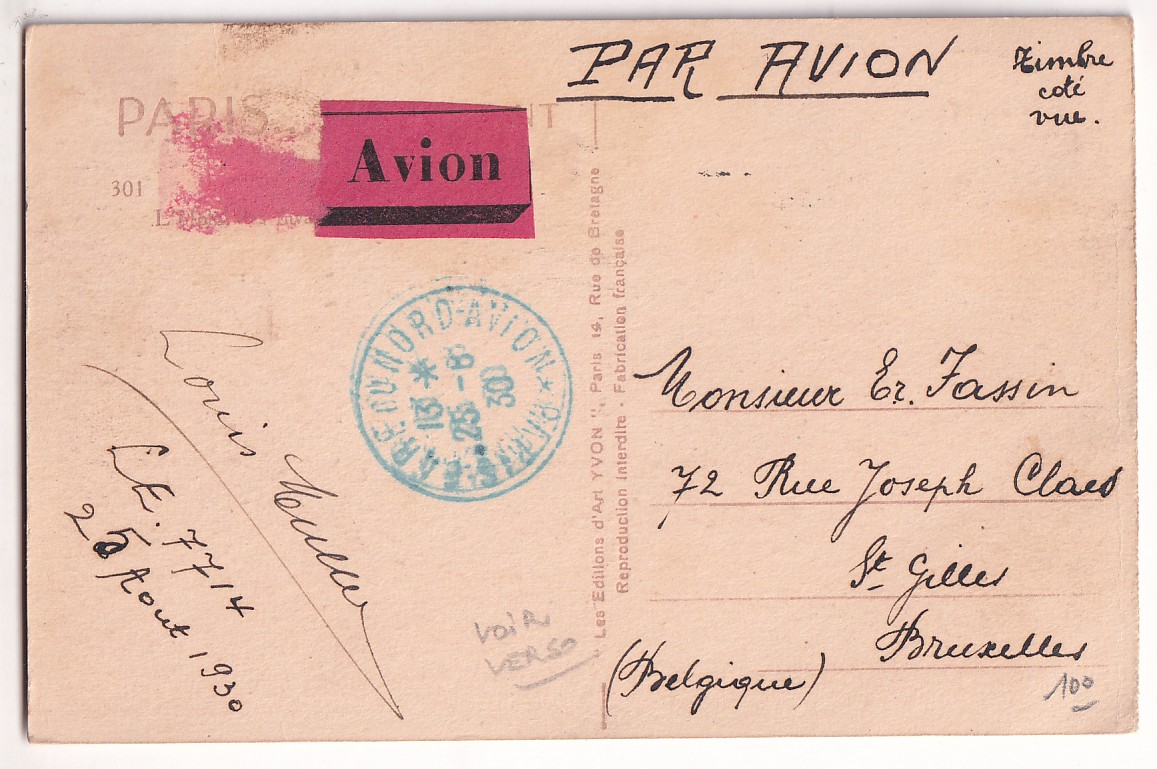 PAR AVION
Timbre
coté
vue.
PARIS
Avion
301
GARE DU NORD-AVION * PARIS
13 *
25 - 8
30
Les Editions d'Art YVON", Paris 14, Rue de Bretagne
Reproduction Interdite - Fabrication française
Monsieur Er. Fassin
72 Rue Joseph Claes
St Gilles
Bruxelles
(Belgique)
Louis Muller
7714
25 Aout 1930
VOIR
VERSO
100